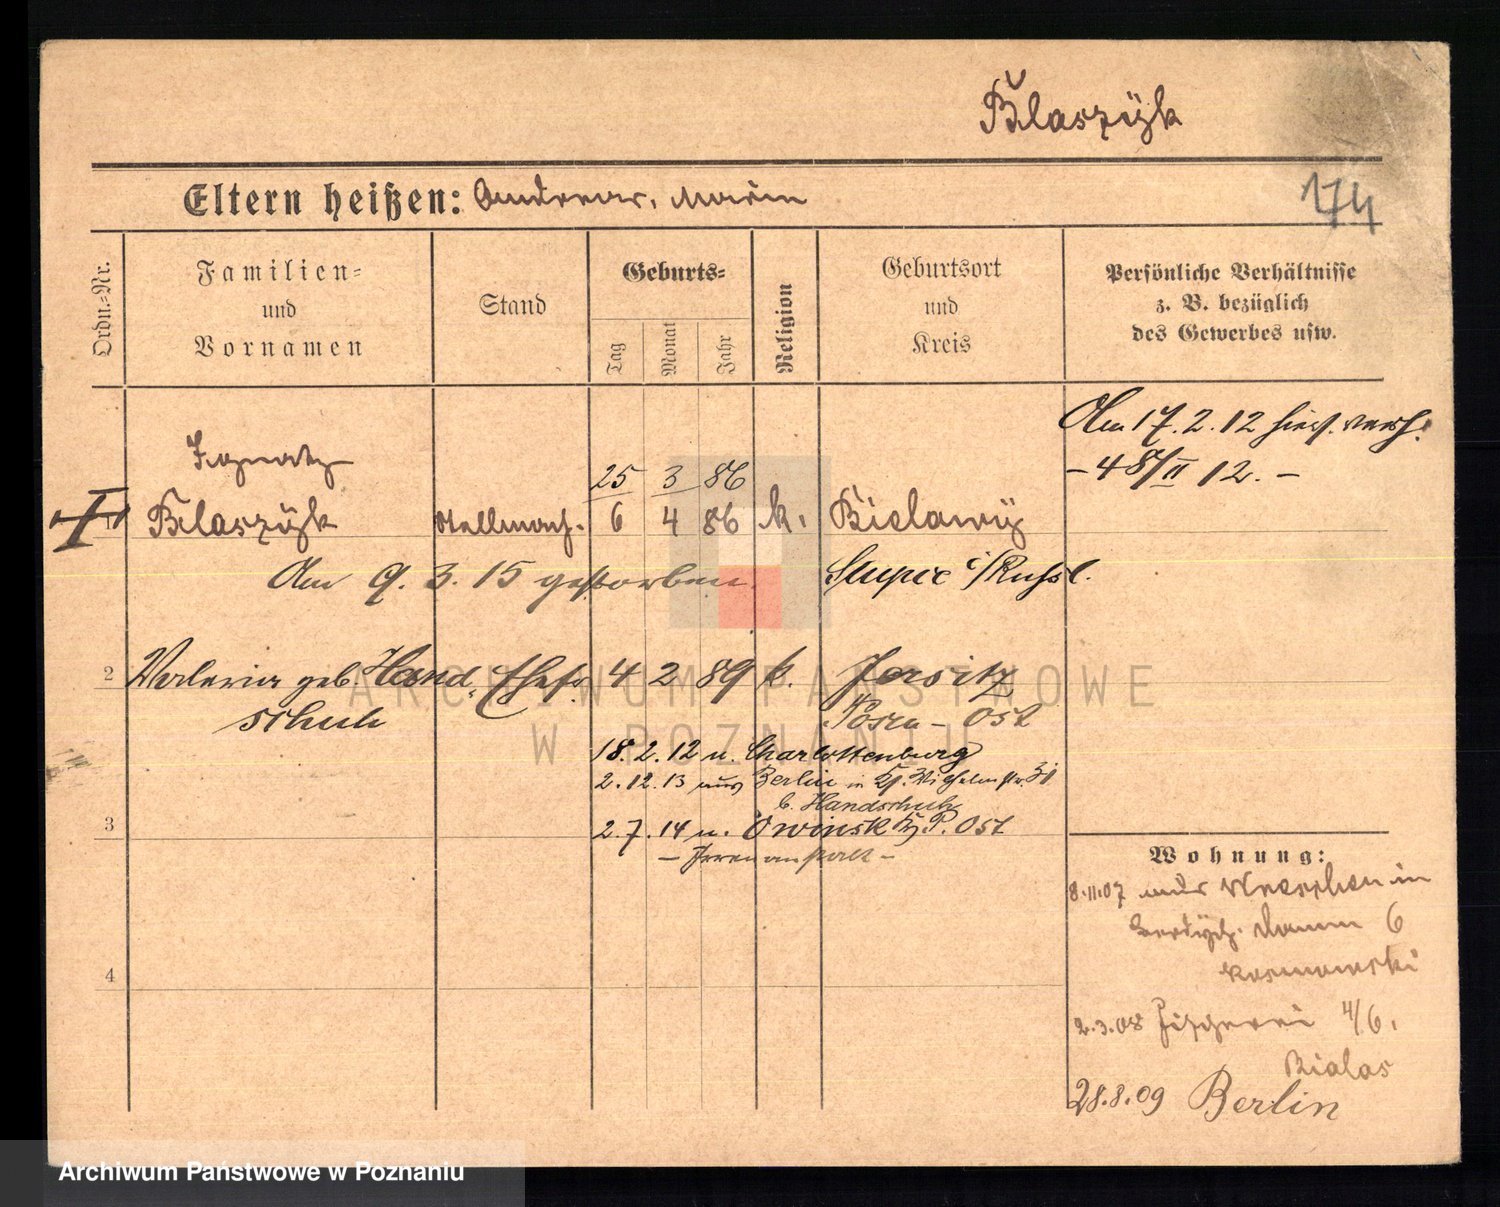 Blaszÿk
Eltern heißen: Andreas, Marie
174
Ordn.-Nr.
Familien-
und
Vornamen
Stand
Geburts-
Tag
Monat
Jahr
Religion
Geburtsort
und
Kreis
Persönliche Verhältnisse
z. B. bezüglich
des Gewerbes usw.
Am 17.2.12 hier
– 48/II 12. –
Ignatz
25 3 86
Blaszÿk Stellmach. 6 4 86 k. Bielawÿ
Am 9.3.15 gestorben.
Slupce i/Russl.
2 Valeria geb. Hand Ehefr 4 2 89 k. Jersitz
schuh
Posen – Ost
18.2.12 n. Charlottenburg
2.12.13 aus Berlin in Kg. Wilhelmstr. 31
b. Handschuh
3 2.7.14 n. Owinsk Kr. P. Ost
– Irrenanstalt –
4
Wohnung:
8.11.07 aus Wreschen in
Berdÿch. Damm 6
2.3.08 Fischerei 4/6.
Bialas
28.8.09 Berlin
ARCHIWUM PAŃSTWOWE
W POZNANIU
Archiwum Państwowe w Poznaniu